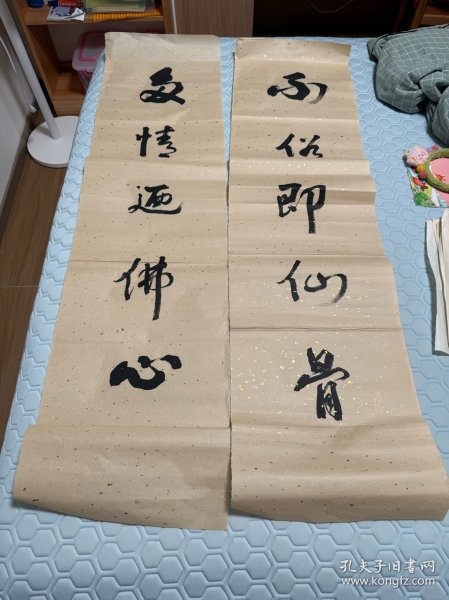 不俗即仙骨
多情迺佛心
孔夫子旧书网
www.kongfz.com